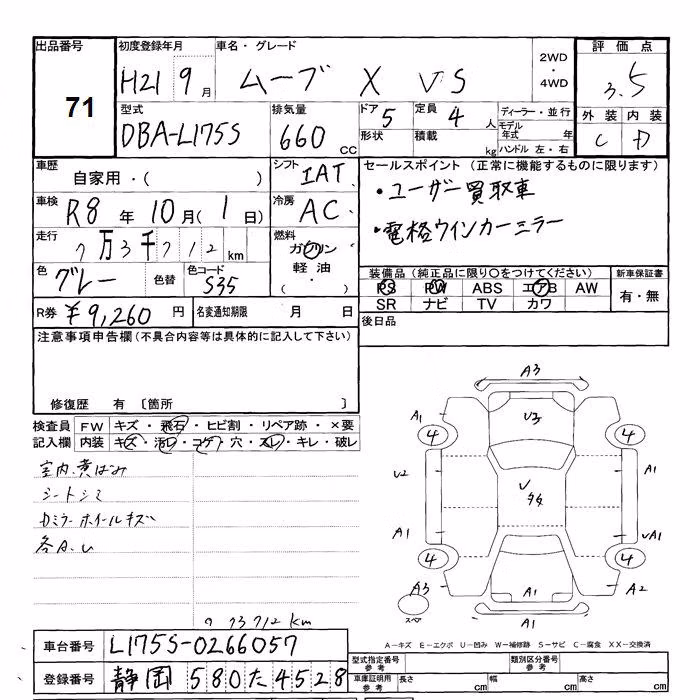 出品番号 初度登録年月 車名・グレード 2WD・4WD 評価点
71 H21 9月 ムーブ X VS 3.5
型式 排気量 ドア 5 定員 4人 ディーラー・並行 外装 内装
DBA-L175S 660 CC 形状 積載 kg モデル年式 年 C D
ハンドル 左・右
車歴 自家用・( ) シフト IAT セールスポイント(正常に機能するものに限ります)
車検 R8年10月(1日) 冷房 AC ・ユーザー買取車
走行 7万3千712km 燃料 ガソリン 軽油 ( ・ ) ・電格ウインカーミラー
色 グレー 色替 色コード S35 装備品(純正品に限り○をつけてください) 新車保証書
PS PW ABS エアB AW 有・無
SR ナビ TV カワ
R券 ¥9,260円 名変通知期限 月 日 後日品
注意事項申告欄(不具合内容等は具体的に記入して下さい)
修復歴 有 〔箇所 〕
検査員 FW キズ・飛石・ヒビ割・リペア跡・×要
記入欄 内装 キズ・汚レ・コゲ・穴・スレ・キレ・破レ
室内黄ばみ
シートシミ
カミラーホイールキズ
各A.U
73712km
A3
A1 U3
4 4
U2 A1
U
タタ
A1 UA1
4 4
A3 A1 A2
スペア A1
A－キズ E－エクボ U－凹み W－補修跡 S－サビ C－腐食 XX－交換済
車台番号 L175S-0266057
型式指定番号 参考 類別区分番号 参考
登録番号 静岡 580 た 4528
車庫証明用 参考 長さ cm 幅 cm 高さ cm